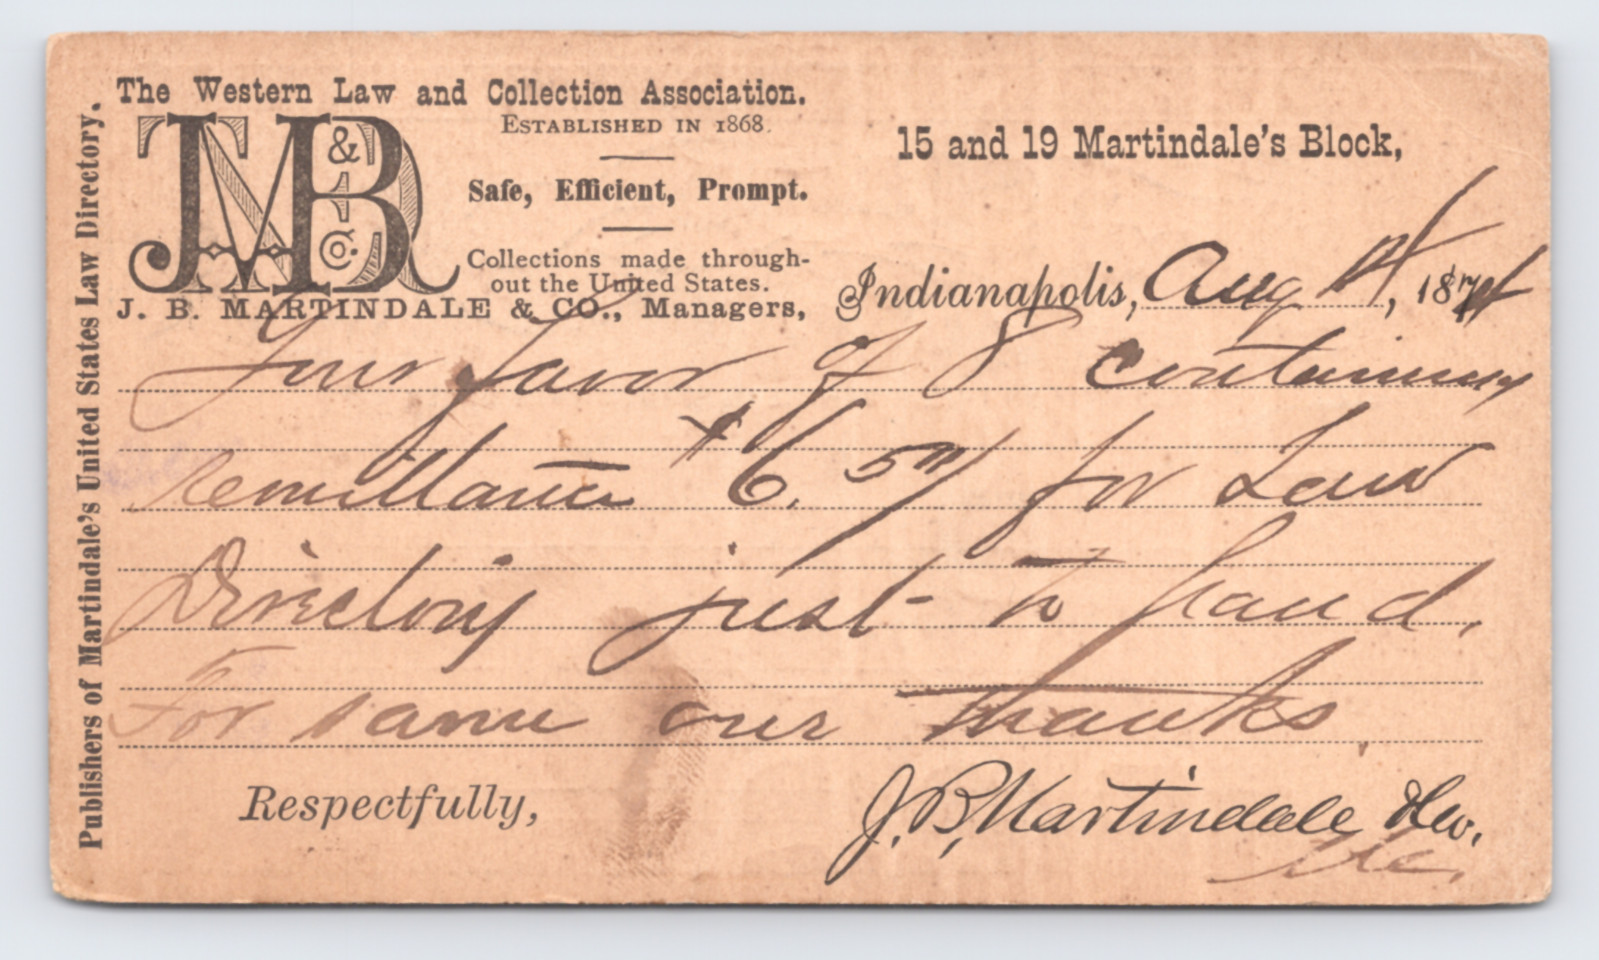 Publishers of Martindale's United States Law Directory.
The Western Law and Collection Association.
ESTABLISHED IN 1868.
JMB & Co.
Safe, Efficient, Prompt.
Collections made through-
out the United States.
J. B. MARTINDALE & CO., Managers,
15 and 19 Martindale's Block,
Indianapolis, Aug , 187
Your favor of 8 containing
Remittance $6.50/ for Law
Directory just to hand.
For same our thanks.
Respectfully,
J. B. Martindale &Co.